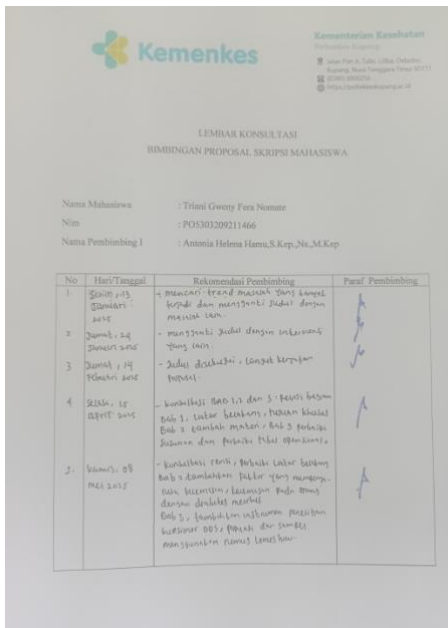 Kemenkes
Kementerian Kesehatan
Poltekkes Kupang
Jalan Piet A. Tallo, Liliba, Oebobo,
Kupang, Nusa Tenggara Timur 85111
(0380) 8800256
https://poltekkeskupang.ac.id
LEMBAR KONSULTASI
BIMBINGAN PROPOSAL SKRIPSI MAHASISWA
Nama Mahasiswa : Triani Gweny Fera Nomate
Nim : PO5303209211466
Nama Pembimbing I : Antonia Helena Hamu,S.Kep.,Ns.,M.Kep
No Hari/Tanggal Rekomendasi Pembimbing Paraf Pembimbing
1 Senin, 13 - mencari trend masalah yang banyak
Januari terjadi dan mengganti Judul dengan
2025 masalah lain.
2 Jumat, 24 - mengganti Judul dengan intervensi
Januari 2025 yang lain.
3 Jumat, 14 - Judul disetujui, lanjut kerjakan
Februari 2025 proposal.
4 Selasa, 15 - Konsultasi BAB 1,2 dan 3. revisi bagian
april 2025 Bab 1, latar belakang, tujuan khusus
Bab 2 tambah materi, Bab 3 perbaiki
dan perbaiki tabel operasional.
5. Kamis, 08 - Konsultasi revisi, perbaiki latar belakang
mei 2025 Bab 2 tambahkan faktor yang
kecemasan, kecemasan pada orang
dengan diabetes melitus
Bab 3, tambahkan instrumen penelitian
kuesioner DDS, populasi dan sampel
menggunakan rumus